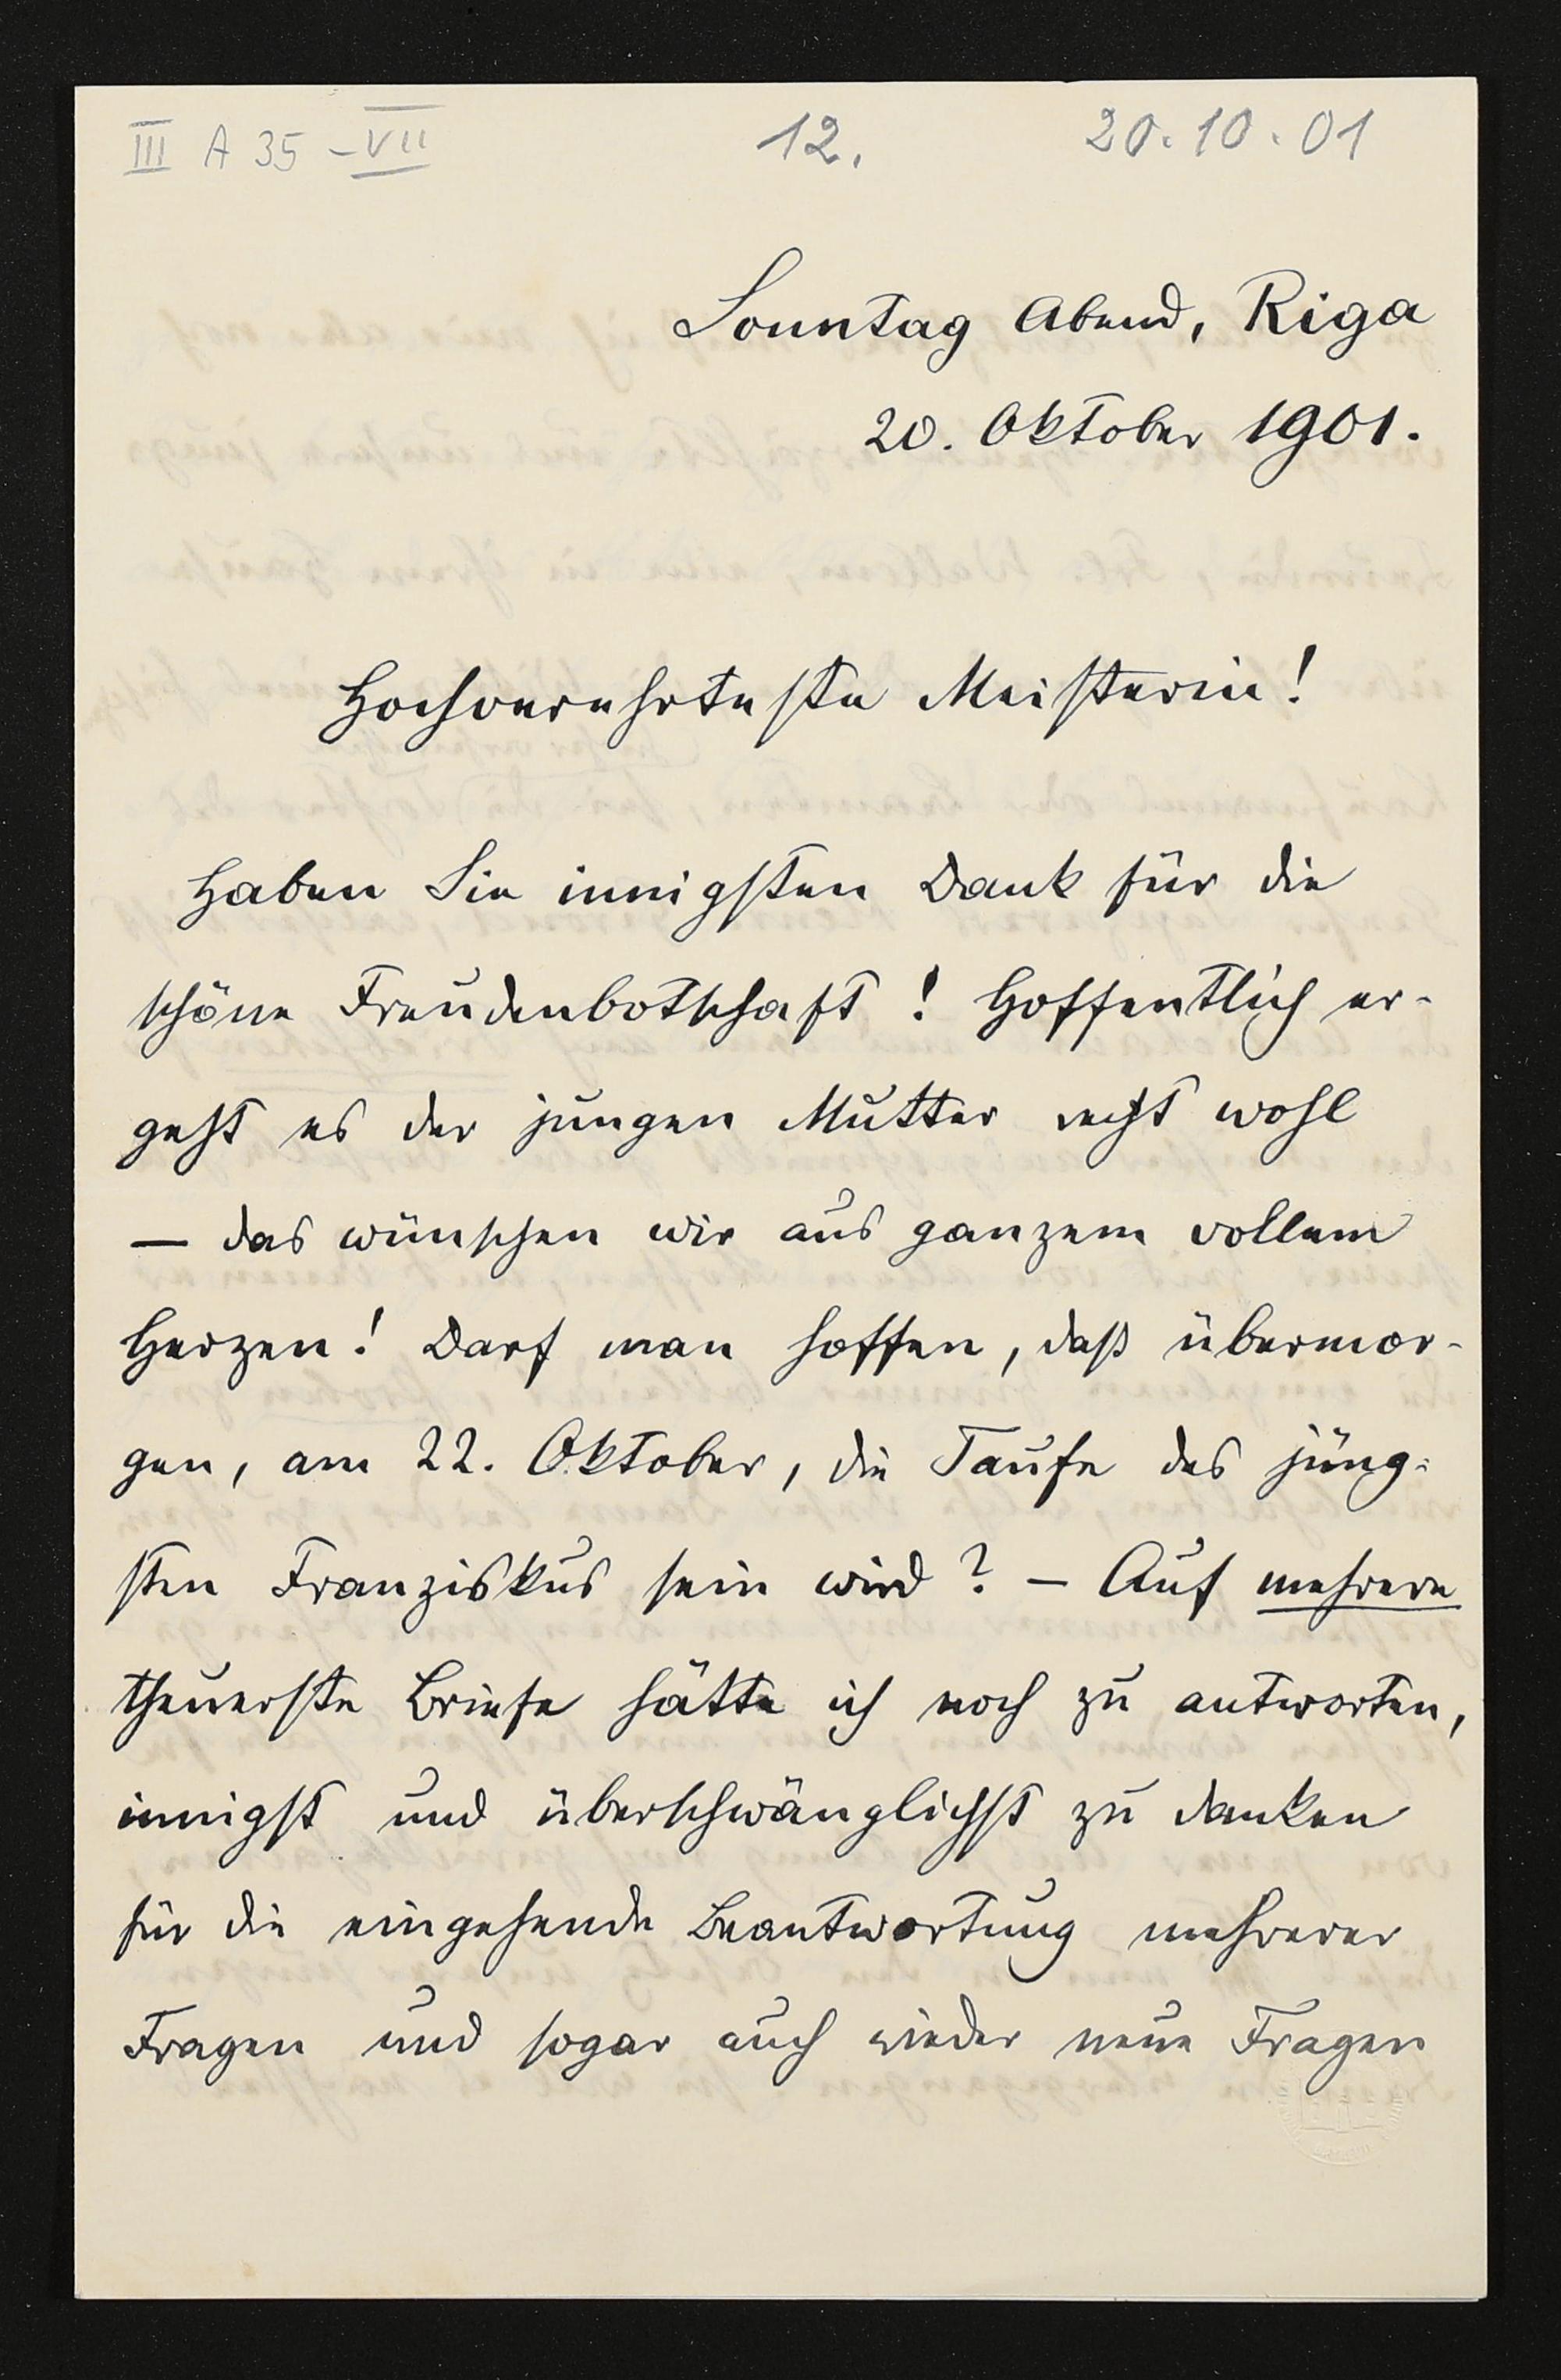 III A 35 – VII 12. 20.10.01
Sonntag Abend, Riga
20. Oktober 1901.
Hochverehrteste Meisterin!
Haben Sie innigsten Dank für die
schöne Freudenbotschaft! Hoffentlich er-
geht es der jungen Mutter recht wohl
— das wünschen wir aus ganzem vollem
Herzen! Darf man hoffen, daß übermor-
gen, am 22. Oktober, die Taufe des jüng-
sten Franziskus sein wird? — Auf mehrere
theuerste Briefe hätte ich noch zu antworten,
innigst und überschwänglichst zu danken
für die eingehende Beantwortung mehrerer
Fragen und sogar auch wieder neue Fragen